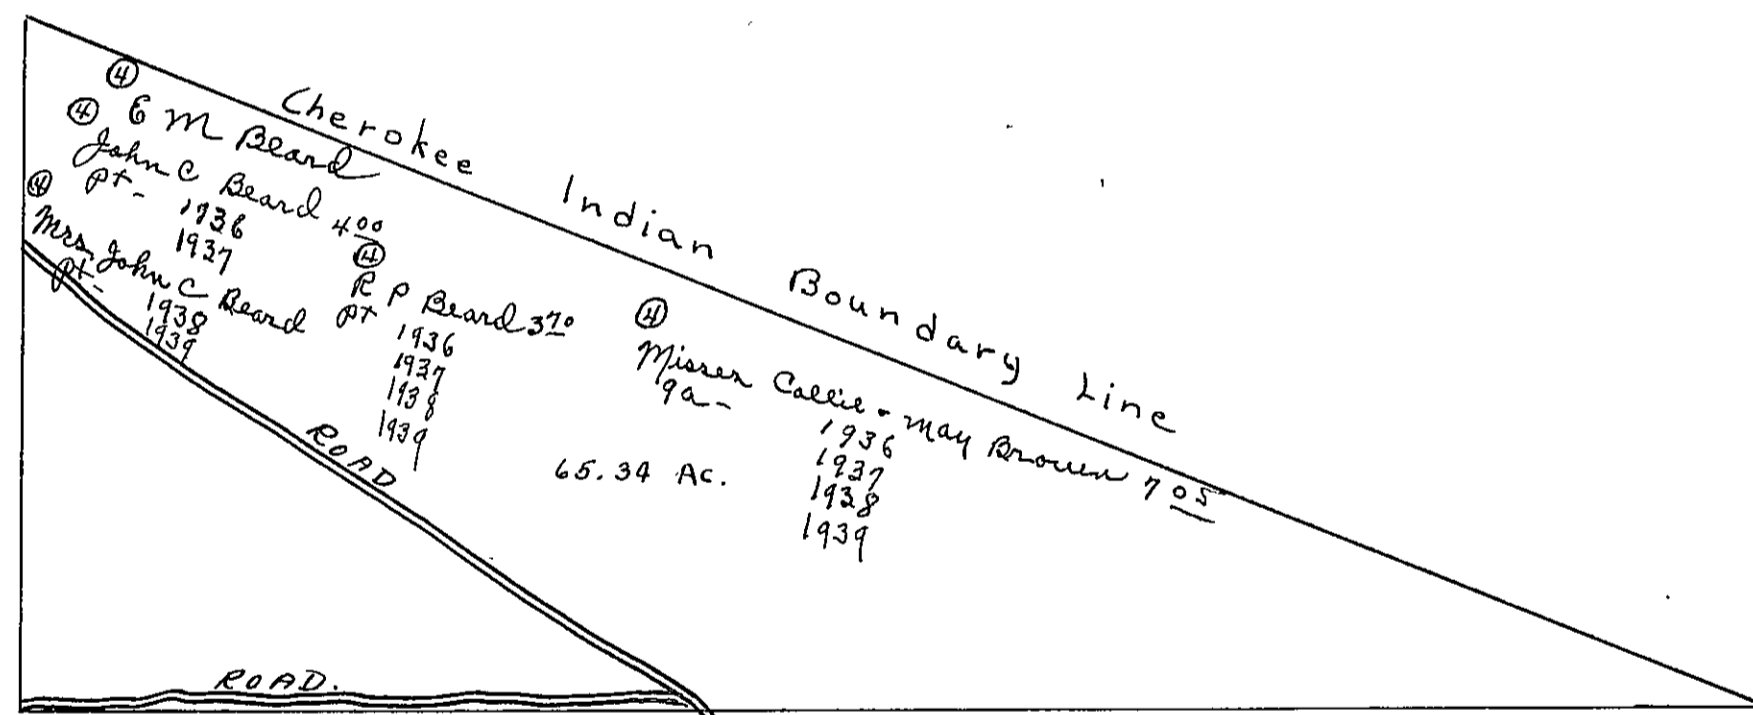 Cherokee Indian Boundary Line
④
E M Beard
④
John C Beard 4 00
pt-
1936
1937
④
Mrs. John C Beard
pt-
1938
1939
④
R P Beard 3 70
pt
1936
1937
1938
1939
④
Misses Callie & May Brown 7 05
9a-
1936
1937
1938
1939
65.34 Ac.
ROAD
ROAD.